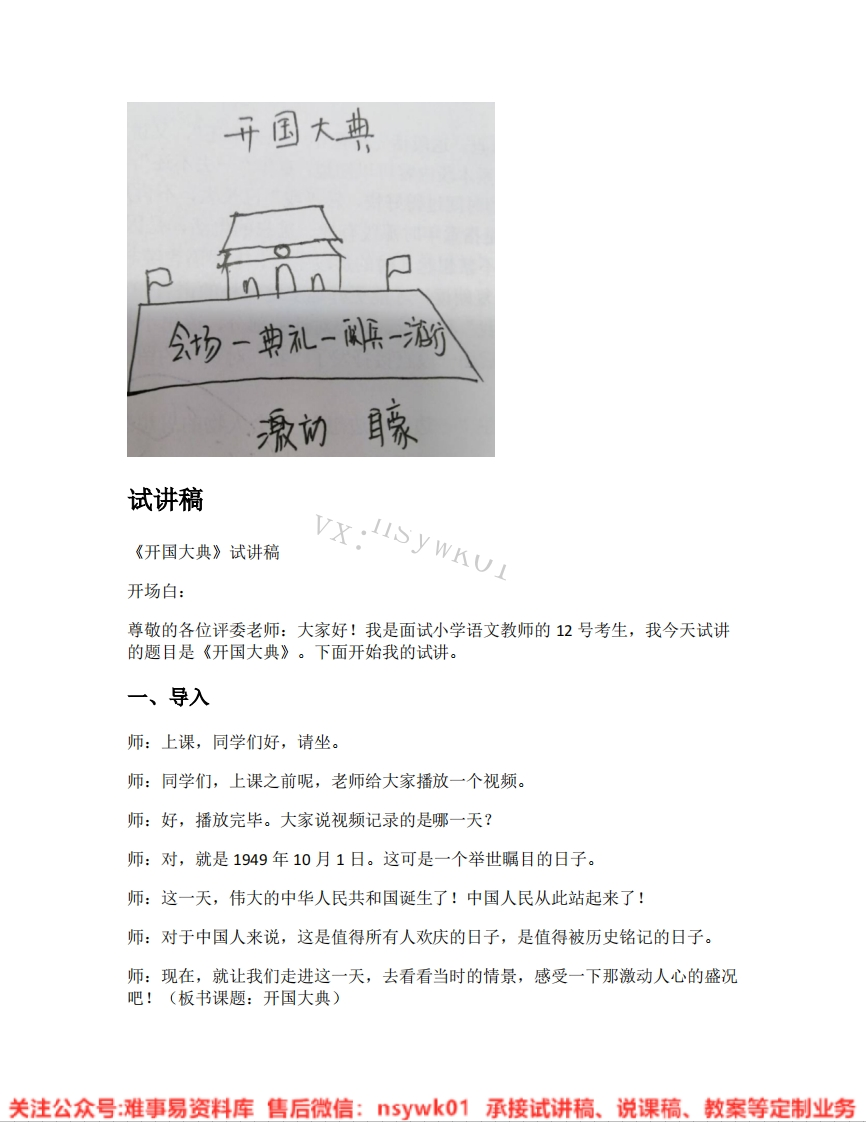 开国大典
会场—典礼—阅兵—游行
激动 自豪
试讲稿
VX:nsywk01
《开国大典》试讲稿
开场白：
尊敬的各位评委老师：大家好！我是面试小学语文教师的 12 号考生，我今天试讲
的题目是《开国大典》。下面开始我的试讲。
一、导入
师：上课，同学们好，请坐。
师：同学们，上课之前呢，老师给大家播放一个视频。
师：好，播放完毕。大家说视频记录的是哪一天？
师：对，就是 1949 年 10 月 1 日。这可是一个举世瞩目的日子。
师：这一天，伟大的中华人民共和国诞生了！中国人民从此站起来了！
师：对于中国人来说，这是值得所有人欢庆的日子，是值得被历史铭记的日子。
师：现在，就让我们走进这一天，去看看当时的情景，感受一下那激动人心的盛况
吧！（板书课题：开国大典）
关注公众号:难事易资料库 售后微信：nsywk01 承接试讲稿、说课稿、教案等定制业务